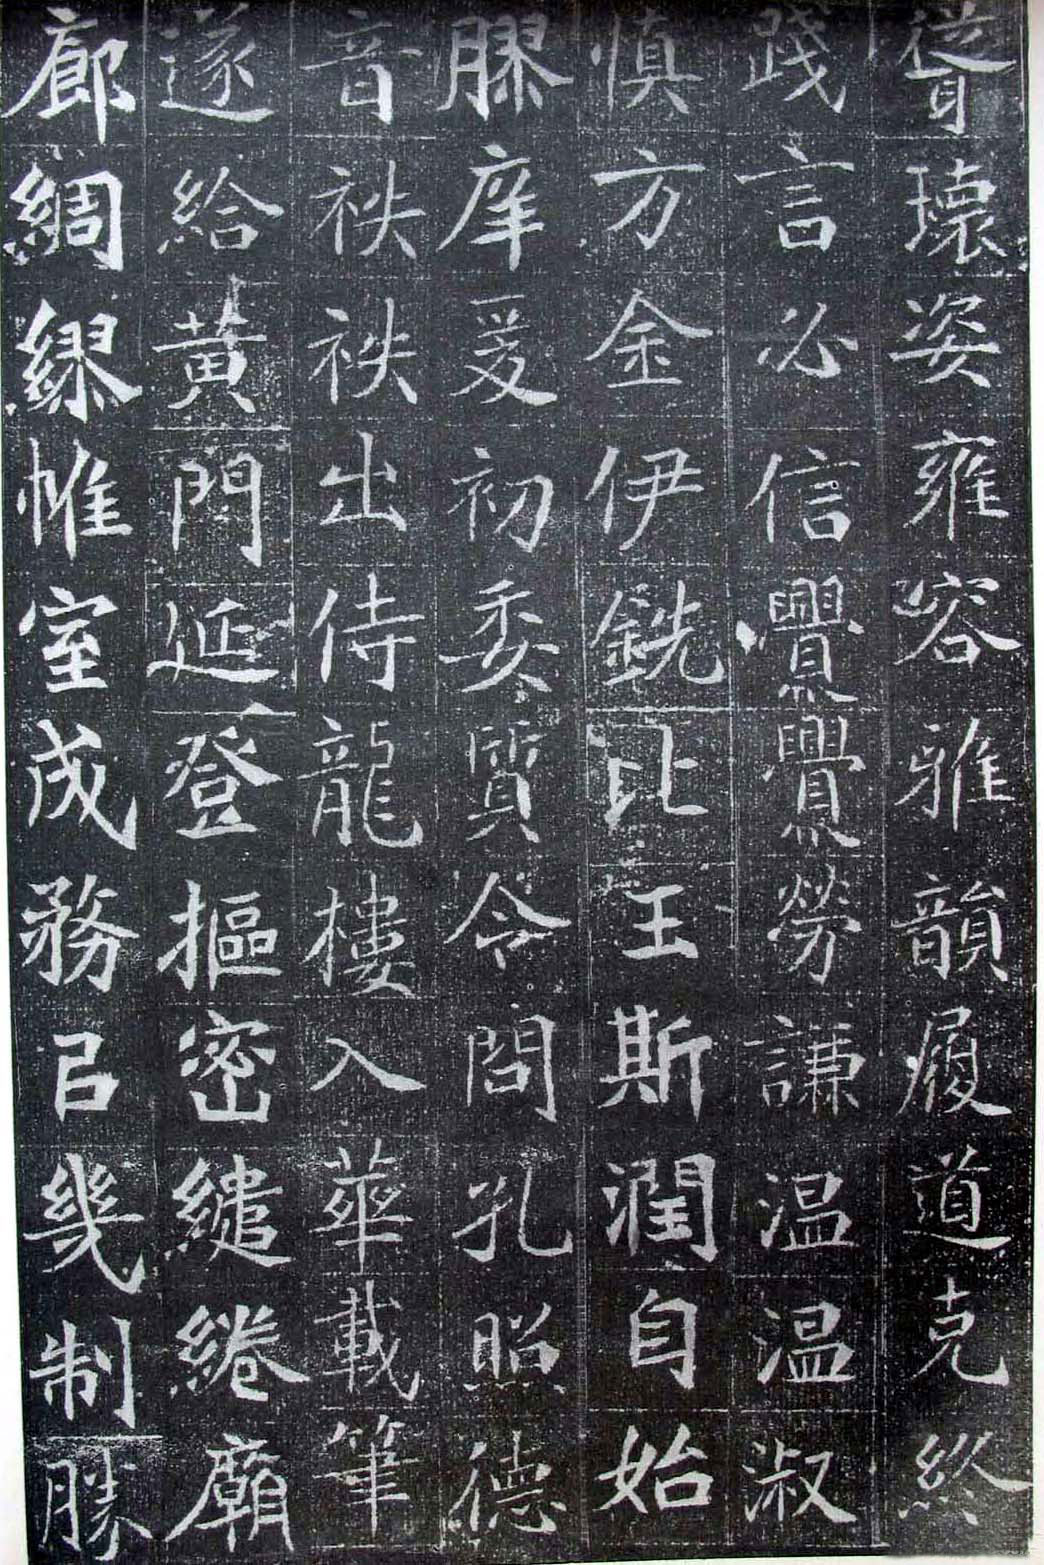 聳瓌姿雍容雅韻履道克終
踐言必信亹亹勞謙温温淑
慎方金伊銑比玉斯潤自始
膠庠爰初委質令問孔照德
音袟袟出侍龍樓入華載筆
遂給黄門延登樞密繾綣廟
廊綢繆帷室成務㠯幾制勝